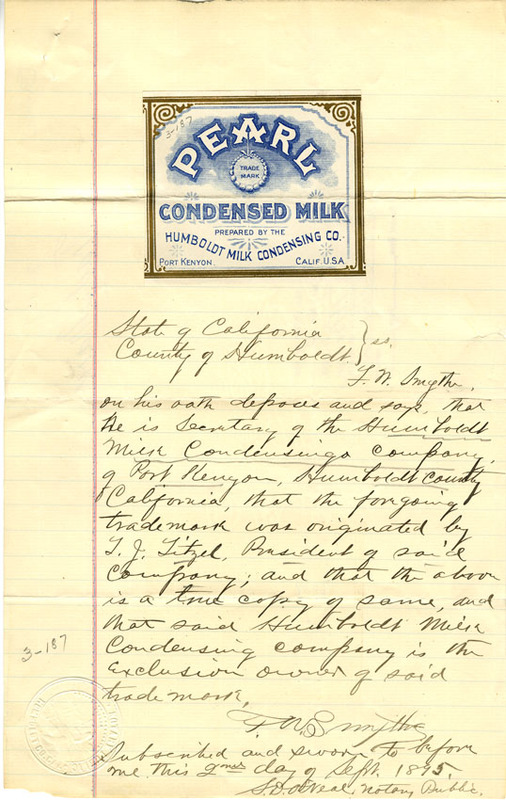 3-187
PEARL
TRADE
MARK
CONDENSED MILK
PREPARED BY THE
HUMBOLDT MILK CONDENSING CO.
PORT KENYON. CALIF. U.S.A.
State of California
County of Humboldt } ss.
F. W. Smythe,
on his oath deposes and says, that
he is Secretary of the Humboldt
Milk Condensing Company,
of Port Kenyon, Humboldt County
California, that the foregoing
trademark was originated by
President of said
Company; and that the above
is a true copy of same, and
that said Humboldt Milk
Condensing Company is the
Exclusion owner of said
trademark.
F W Smythe
Subscribed and sworn to before
me this 2nd day of Sept. 1895.
Notary Public.
3-187